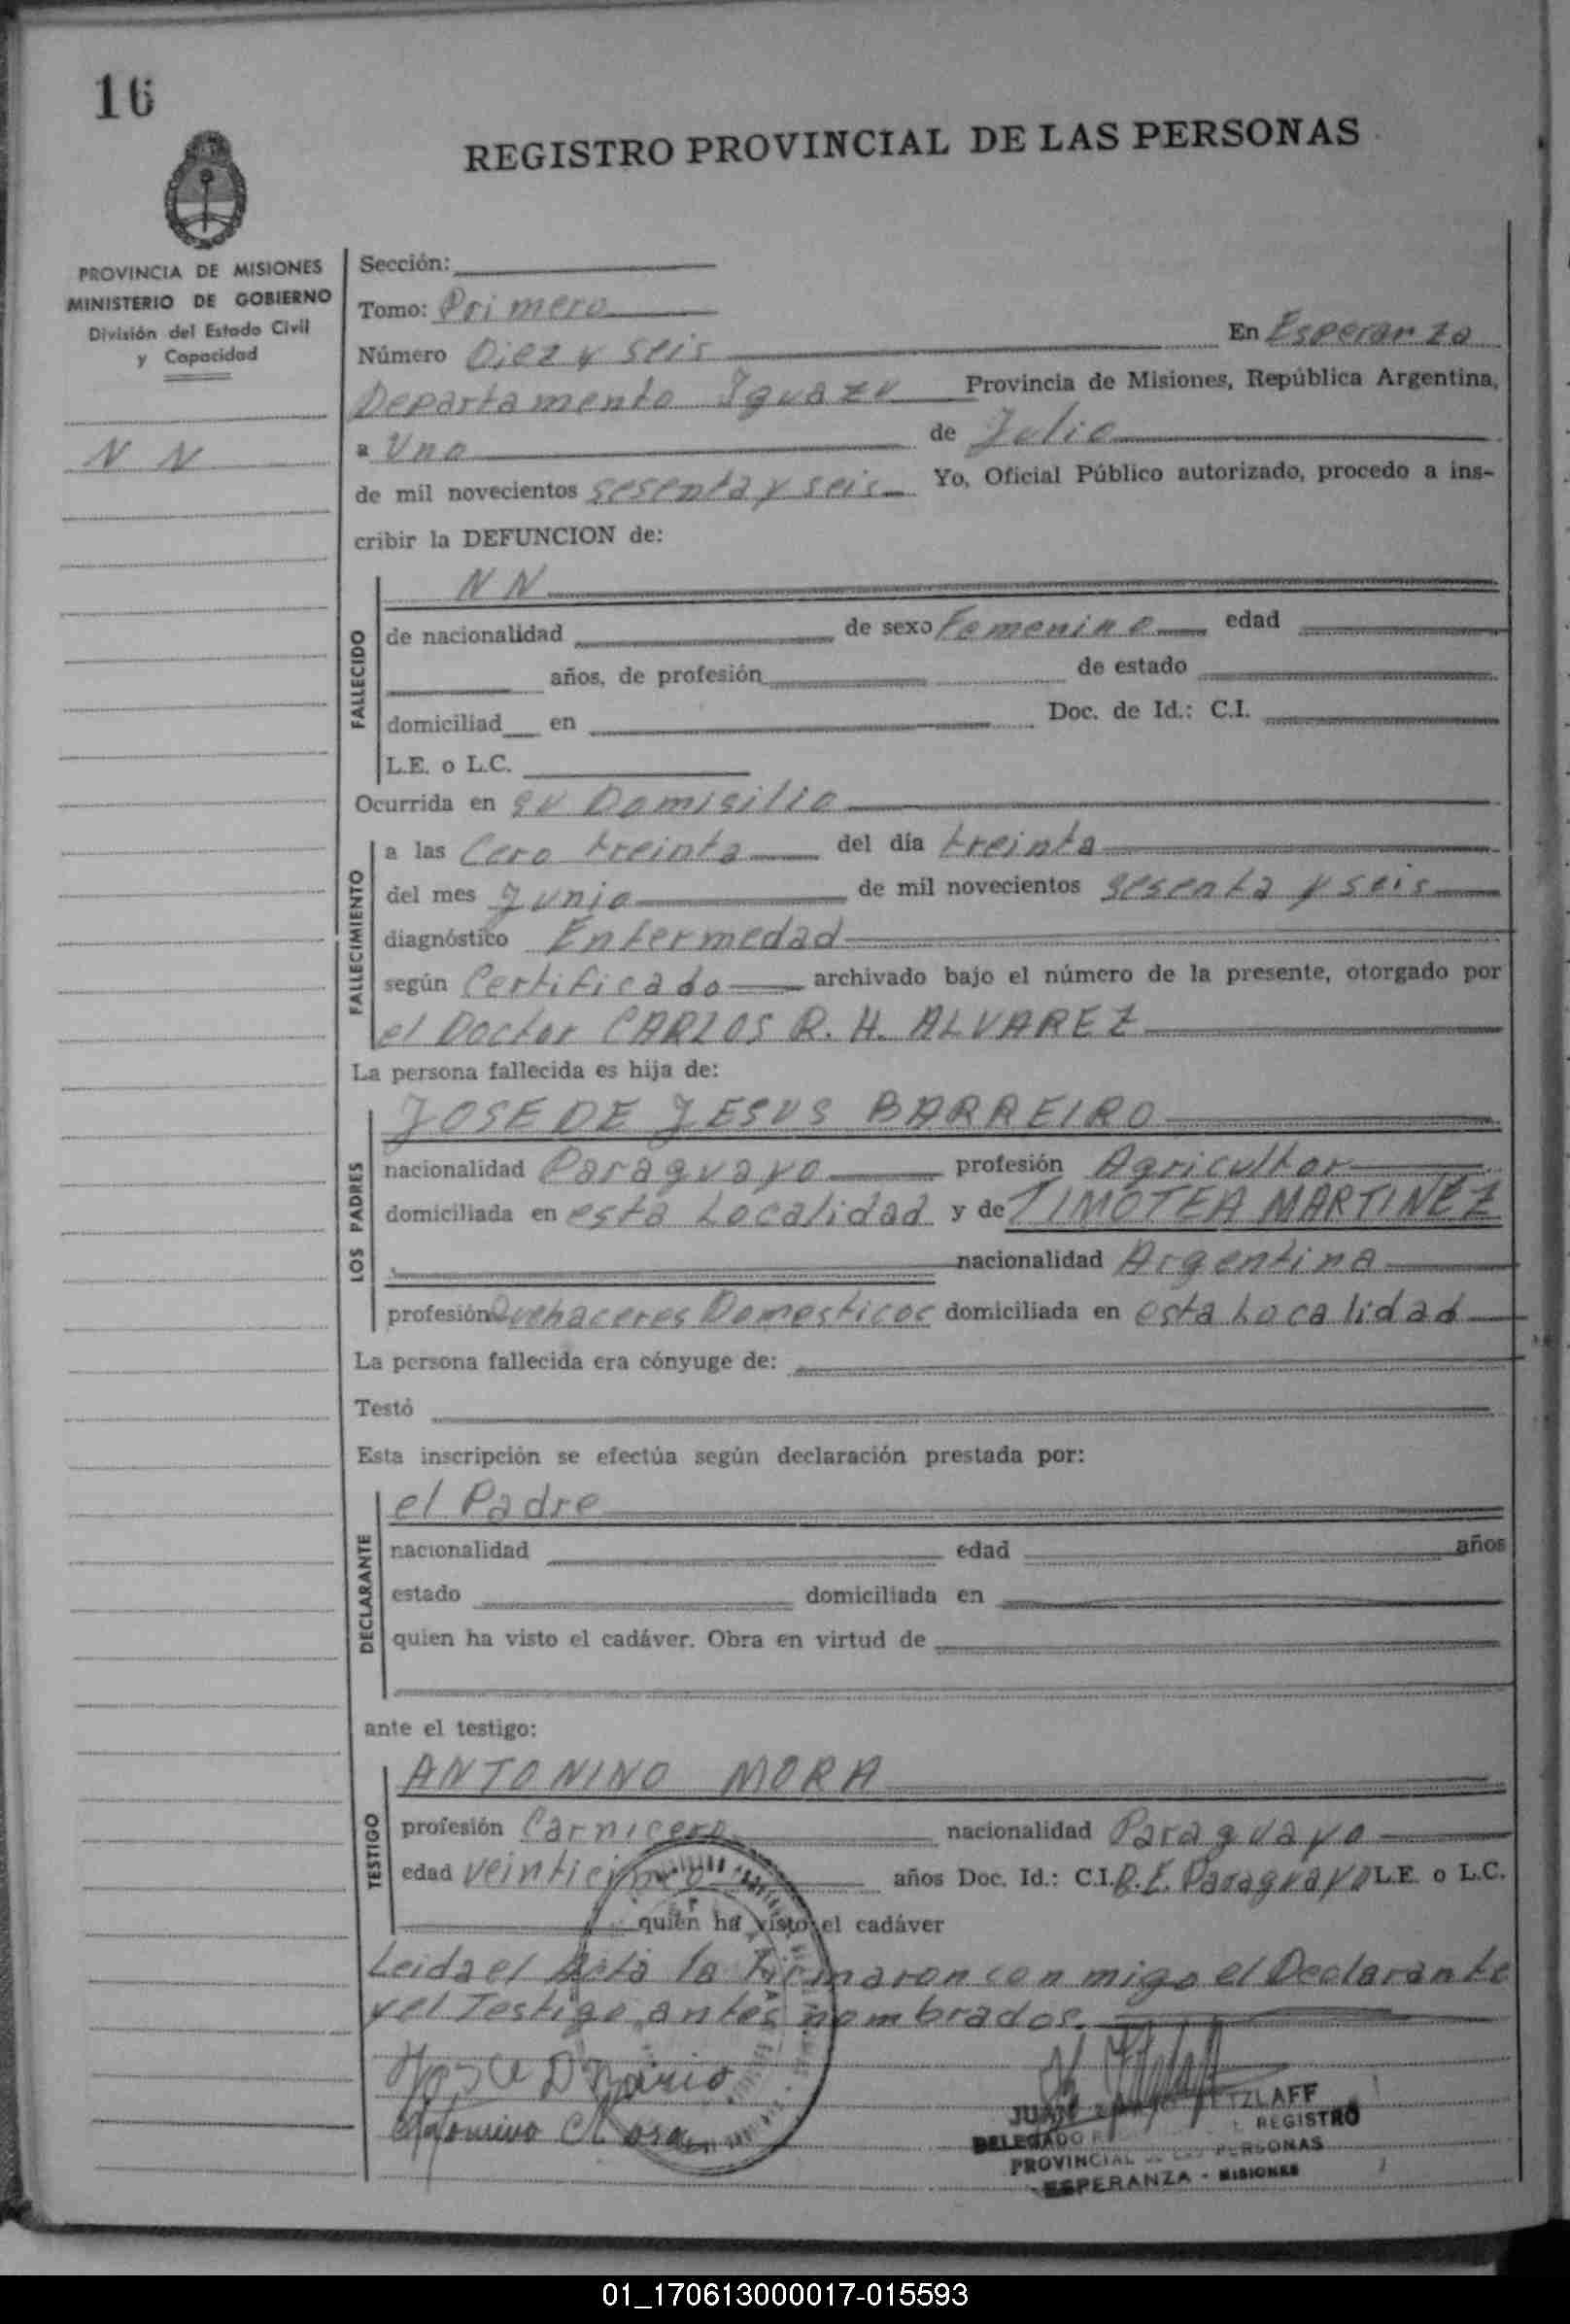 16
REGISTRO PROVINCIAL DE LAS PERSONAS
PROVINCIA DE MISIONES
MINISTERIO DE GOBIERNO
División del Estado Civil
y Capacidad
N N
Sección:
Tomo: Primero
Número Diez y seis En Esperanza
Departamento Iguazu Provincia de Misiones, República Argentina,
a Uno de Julio
de mil novecientos sesenta y seis Yo, Oficial Público autorizado, procedo a ins-
cribir la DEFUNCION de:
FALLECIDO
N N
de nacionalidad de sexo Femenino edad
años, de profesión de estado
domiciliad en Doc. de Id.: C.I.
L.E. o L.C.
Ocurrida en su Domisilio
FALLECIMIENTO
a las Cero treinta del día treinta
del mes Junio de mil novecientos sesenta y seis
diagnóstico Enfermedad
según Certificado archivado bajo el número de la presente, otorgado por
el Doctor CARLOS R. H. ALVAREZ
La persona fallecida es hija de:
LOS PADRES
JOSE DE JESUS BARREIRO
nacionalidad Paraguayo profesión Agricultor
domiciliada en esta Localidad y de TIMOTEA MARTINEZ
nacionalidad Argentina
profesión Quehaceres Domesticos domiciliada en esta Localidad
La persona fallecida era cónyuge de:
Testó
Esta inscripción se efectúa según declaración prestada por:
DECLARANTE
el Padre
nacionalidad edad años
estado domiciliada en
quien ha visto el cadáver. Obra en virtud de
ante el testigo:
TESTIGO
ANTONINO MORA
profesión Carnicero nacionalidad Paraguayo
edad veinticinco años Doc. Id.: C.I. R.E. Paraguayo L.E. o L.C.
quien ha visto el cadáver
Leida el Acta la Firmaron con migo el Declarante
y el Testigo antes nombrados.
Antonino Mora
JUAN TZLAFF
DELEGADO REGISTRO
PROVINCIAL DE LAS PERSONAS
ESPERANZA - MISIONES
01_170613000017-015593